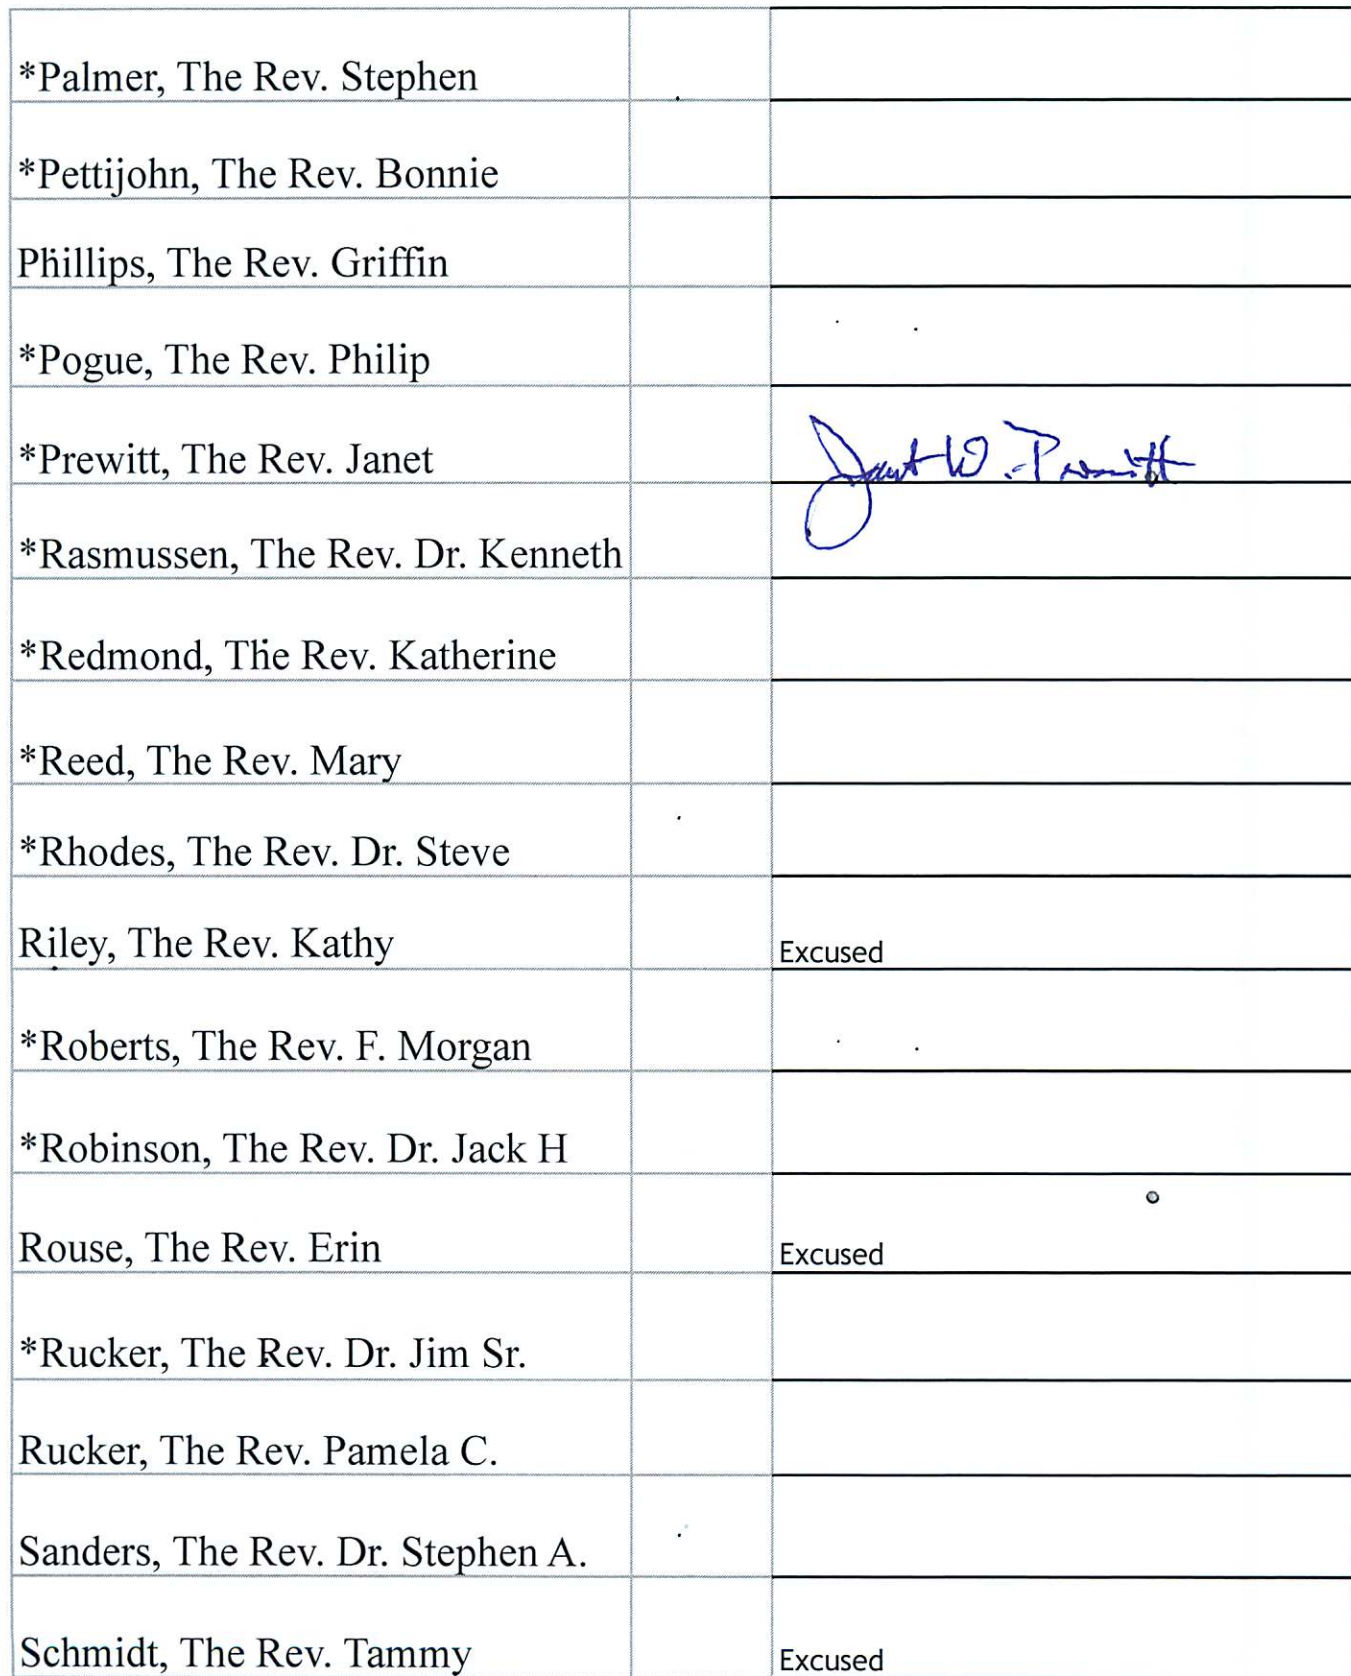 *Palmer, The Rev. Stephen
*Pettijohn, The Rev. Bonnie
Phillips, The Rev. Griffin
*Pogue, The Rev. Philip
*Prewitt, The Rev. Janet Janet W. Prewitt
*Rasmussen, The Rev. Dr. Kenneth
*Redmond, The Rev. Katherine
*Reed, The Rev. Mary
*Rhodes, The Rev. Dr. Steve
Riley, The Rev. Kathy Excused
*Roberts, The Rev. F. Morgan
*Robinson, The Rev. Dr. Jack H
Rouse, The Rev. Erin Excused
*Rucker, The Rev. Dr. Jim Sr.
Rucker, The Rev. Pamela C.
Sanders, The Rev. Dr. Stephen A.
Schmidt, The Rev. Tammy Excused